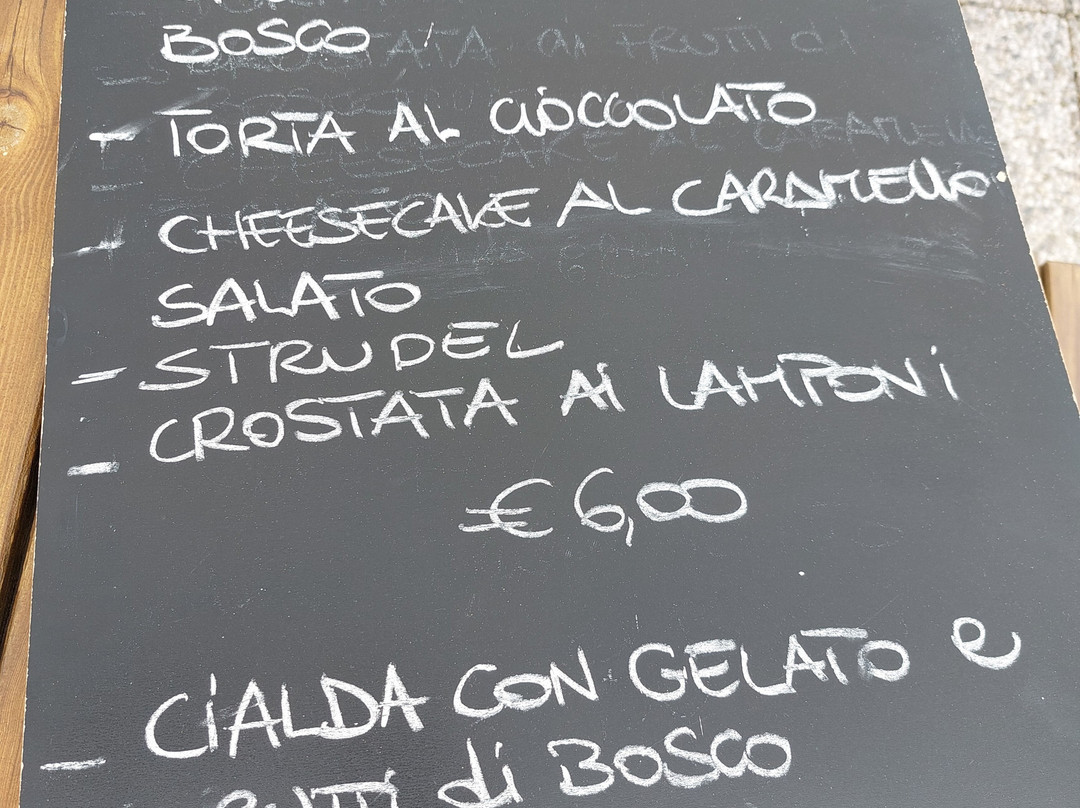 BOSCO
- TORTA AL CIOCCOLATO
- CHEESECAKE AL CARAMELLO
SALATO
- STRUDEL
- CROSTATA AI LAMPONI
€ 6,00
- CIALDA CON GELATO e
FRUTTI di BOSCO